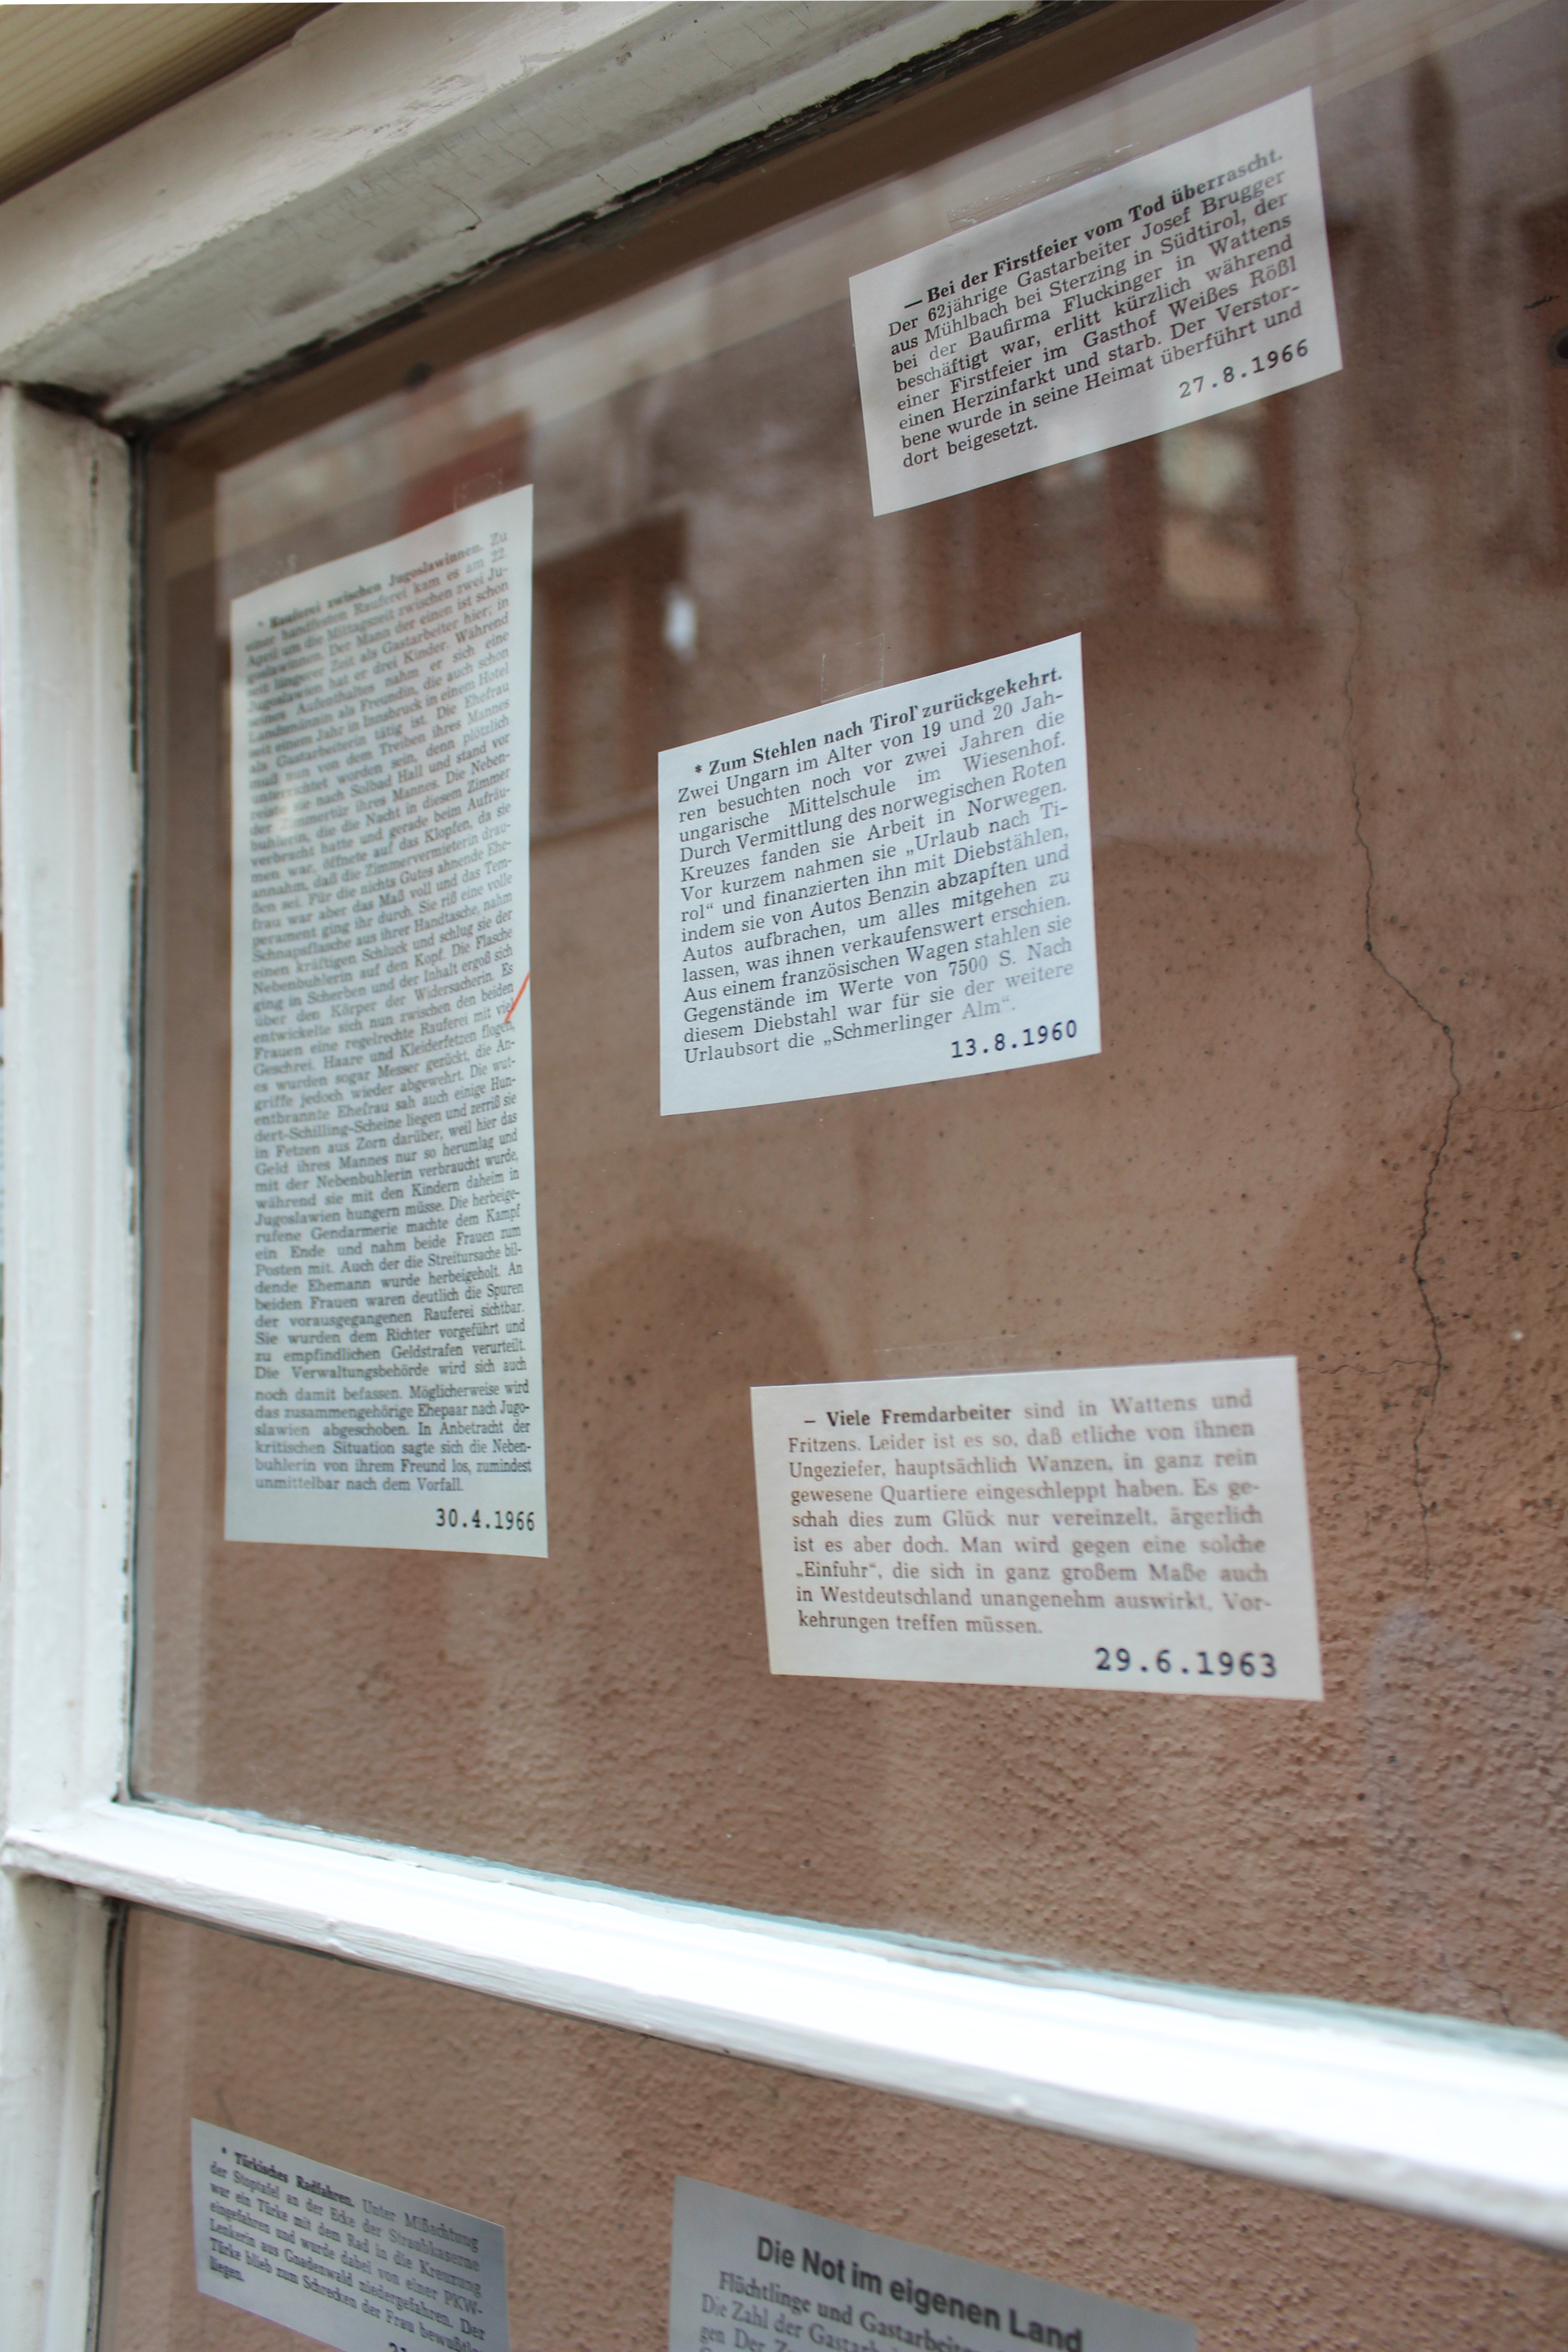 * Rauferei zwischen Jugoslawinnen. Zu
einer handfesten Rauferei kam es am 22.
April um die Mittagszeit zwischen zwei Ju-
goslawinnen. Der Mann der einen ist schon
seit längerer Zeit als Gastarbeiter hier; in
Jugoslawien hat er drei Kinder. Während
seines Aufenthaltes nahm er sich eine
Landsmännin als Freundin, die auch schon
seit einem Jahr in Innsbruck in einem Hotel
als Gastarbeiterin tätig ist. Die Ehefrau
muß nun von dem Treiben ihres Mannes
unterrichtet worden sein, denn plötzlich
reiste sie nach Solbad Hall und stand vor
der Zimmertür ihres Mannes. Die Neben-
buhlerin, die die Nacht in diesem Zimmer
verbracht hatte und gerade beim Aufräu-
men war, öffnete auf das Klopfen, da sie
annahm, daß die Zimmervermieterin drau-
ßen sei. Für die nichts Gutes ahnende Ehe-
frau war aber das Maß voll und das Tem-
perament ging ihr durch. Sie riß eine volle
Schnapsflasche aus ihrer Handtasche, nahm
einen kräftigen Schluck und schlug sie der
Nebenbuhlerin auf den Kopf. Die Flasche
ging in Scherben und der Inhalt ergoß sich
über den Körper der Widersacherin. Es
entwickelte sich nun zwischen den beiden
Frauen eine regelrechte Rauferei mit viel
Geschrei. Haare und Kleiderfetzen flogen,
es wurden sogar Messer gezückt, die An-
griffe jedoch wieder abgewehrt. Die wut-
entbrannte Ehefrau sah auch einige Hun-
dert-Schilling-Scheine liegen und zerriß sie
in Fetzen aus Zorn darüber, weil hier das
Geld ihres Mannes nur so herumlag und
mit der Nebenbuhlerin verbraucht wurde,
während sie mit den Kindern daheim in
Jugoslawien hungern müsse. Die herbeige-
rufene Gendarmerie machte dem Kampf
ein Ende und nahm beide Frauen zum
Posten mit. Auch der die Streitursache bil-
dende Ehemann wurde herbeigeholt. An
beiden Frauen waren deutlich die Spuren
der vorausgegangenen Rauferei sichtbar.
Sie wurden dem Richter vorgeführt und
zu empfindlichen Geldstrafen verurteilt.
Die Verwaltungsbehörde wird sich auch
noch damit befassen. Möglicherweise wird
das zusammengehörige Ehepaar nach Jugo-
slawien abgeschoben. In Anbetracht der
kritischen Situation sagte sich die Neben-
buhlerin von ihrem Freund los, zumindest
unmittelbar nach dem Vorfall.
30.4.1966
— Bei der Firstfeier vom Tod überrascht.
Der 62jährige Gastarbeiter Josef Brugger
aus Mühlbach bei Sterzing in Südtirol, der
bei der Baufirma Fluckinger in Wattens
beschäftigt war, erlitt kürzlich während
einer Firstfeier im Gasthof Weißes Rößl
einen Herzinfarkt und starb. Der Verstor-
bene wurde in seine Heimat überführt und
dort beigesetzt.
27.8.1966
* Zum Stehlen nach Tirol zurückgekehrt.
Zwei Ungarn im Alter von 19 und 20 Jah-
ren besuchten noch vor zwei Jahren die
ungarische Mittelschule im Wiesenhof.
Durch Vermittlung des norwegischen Roten
Kreuzes fanden sie Arbeit in Norwegen.
Vor kurzem nahmen sie „Urlaub nach Ti-
rol“ und finanzierten ihn mit Diebstählen,
indem sie von Autos Benzin abzapften und
Autos aufbrachen, um alles mitgehen zu
lassen, was ihnen verkaufenswert erschien.
Aus einem französischen Wagen stahlen sie
Gegenstände im Werte von 7500 S. Nach
diesem Diebstahl war für sie der weitere
Urlaubsort die „Schmerlinger Alm“.
13.8.1960
— Viele Fremdarbeiter sind in Wattens und
Fritzens. Leider ist es so, daß etliche von ihnen
Ungeziefer, hauptsächlich Wanzen, in ganz rein
gewesene Quartiere eingeschleppt haben. Es ge-
schah dies zum Glück nur vereinzelt, ärgerlich
ist es aber doch. Man wird gegen eine solche
„Einfuhr“, die sich in ganz großem Maße auch
in Westdeutschland unangenehm auswirkt, Vor-
kehrungen treffen müssen.
29.6.1963
* Türkisches Radfahren. Unter Mißachtung
der Stoptafel an der Ecke der Straubkaserne
war ein Türke mit dem Rad in die Kreuzung
eingefahren und wurde dabei von einer PKW-
Lenkerin aus Gnadenwald niedergefahren. Der
Türke blieb zum Schrecken der Frau bewußtlos
liegen.
Die Not im eigenen Land
Flüchtlinge und Gastarbeiter
Die Zahl der
gen Der